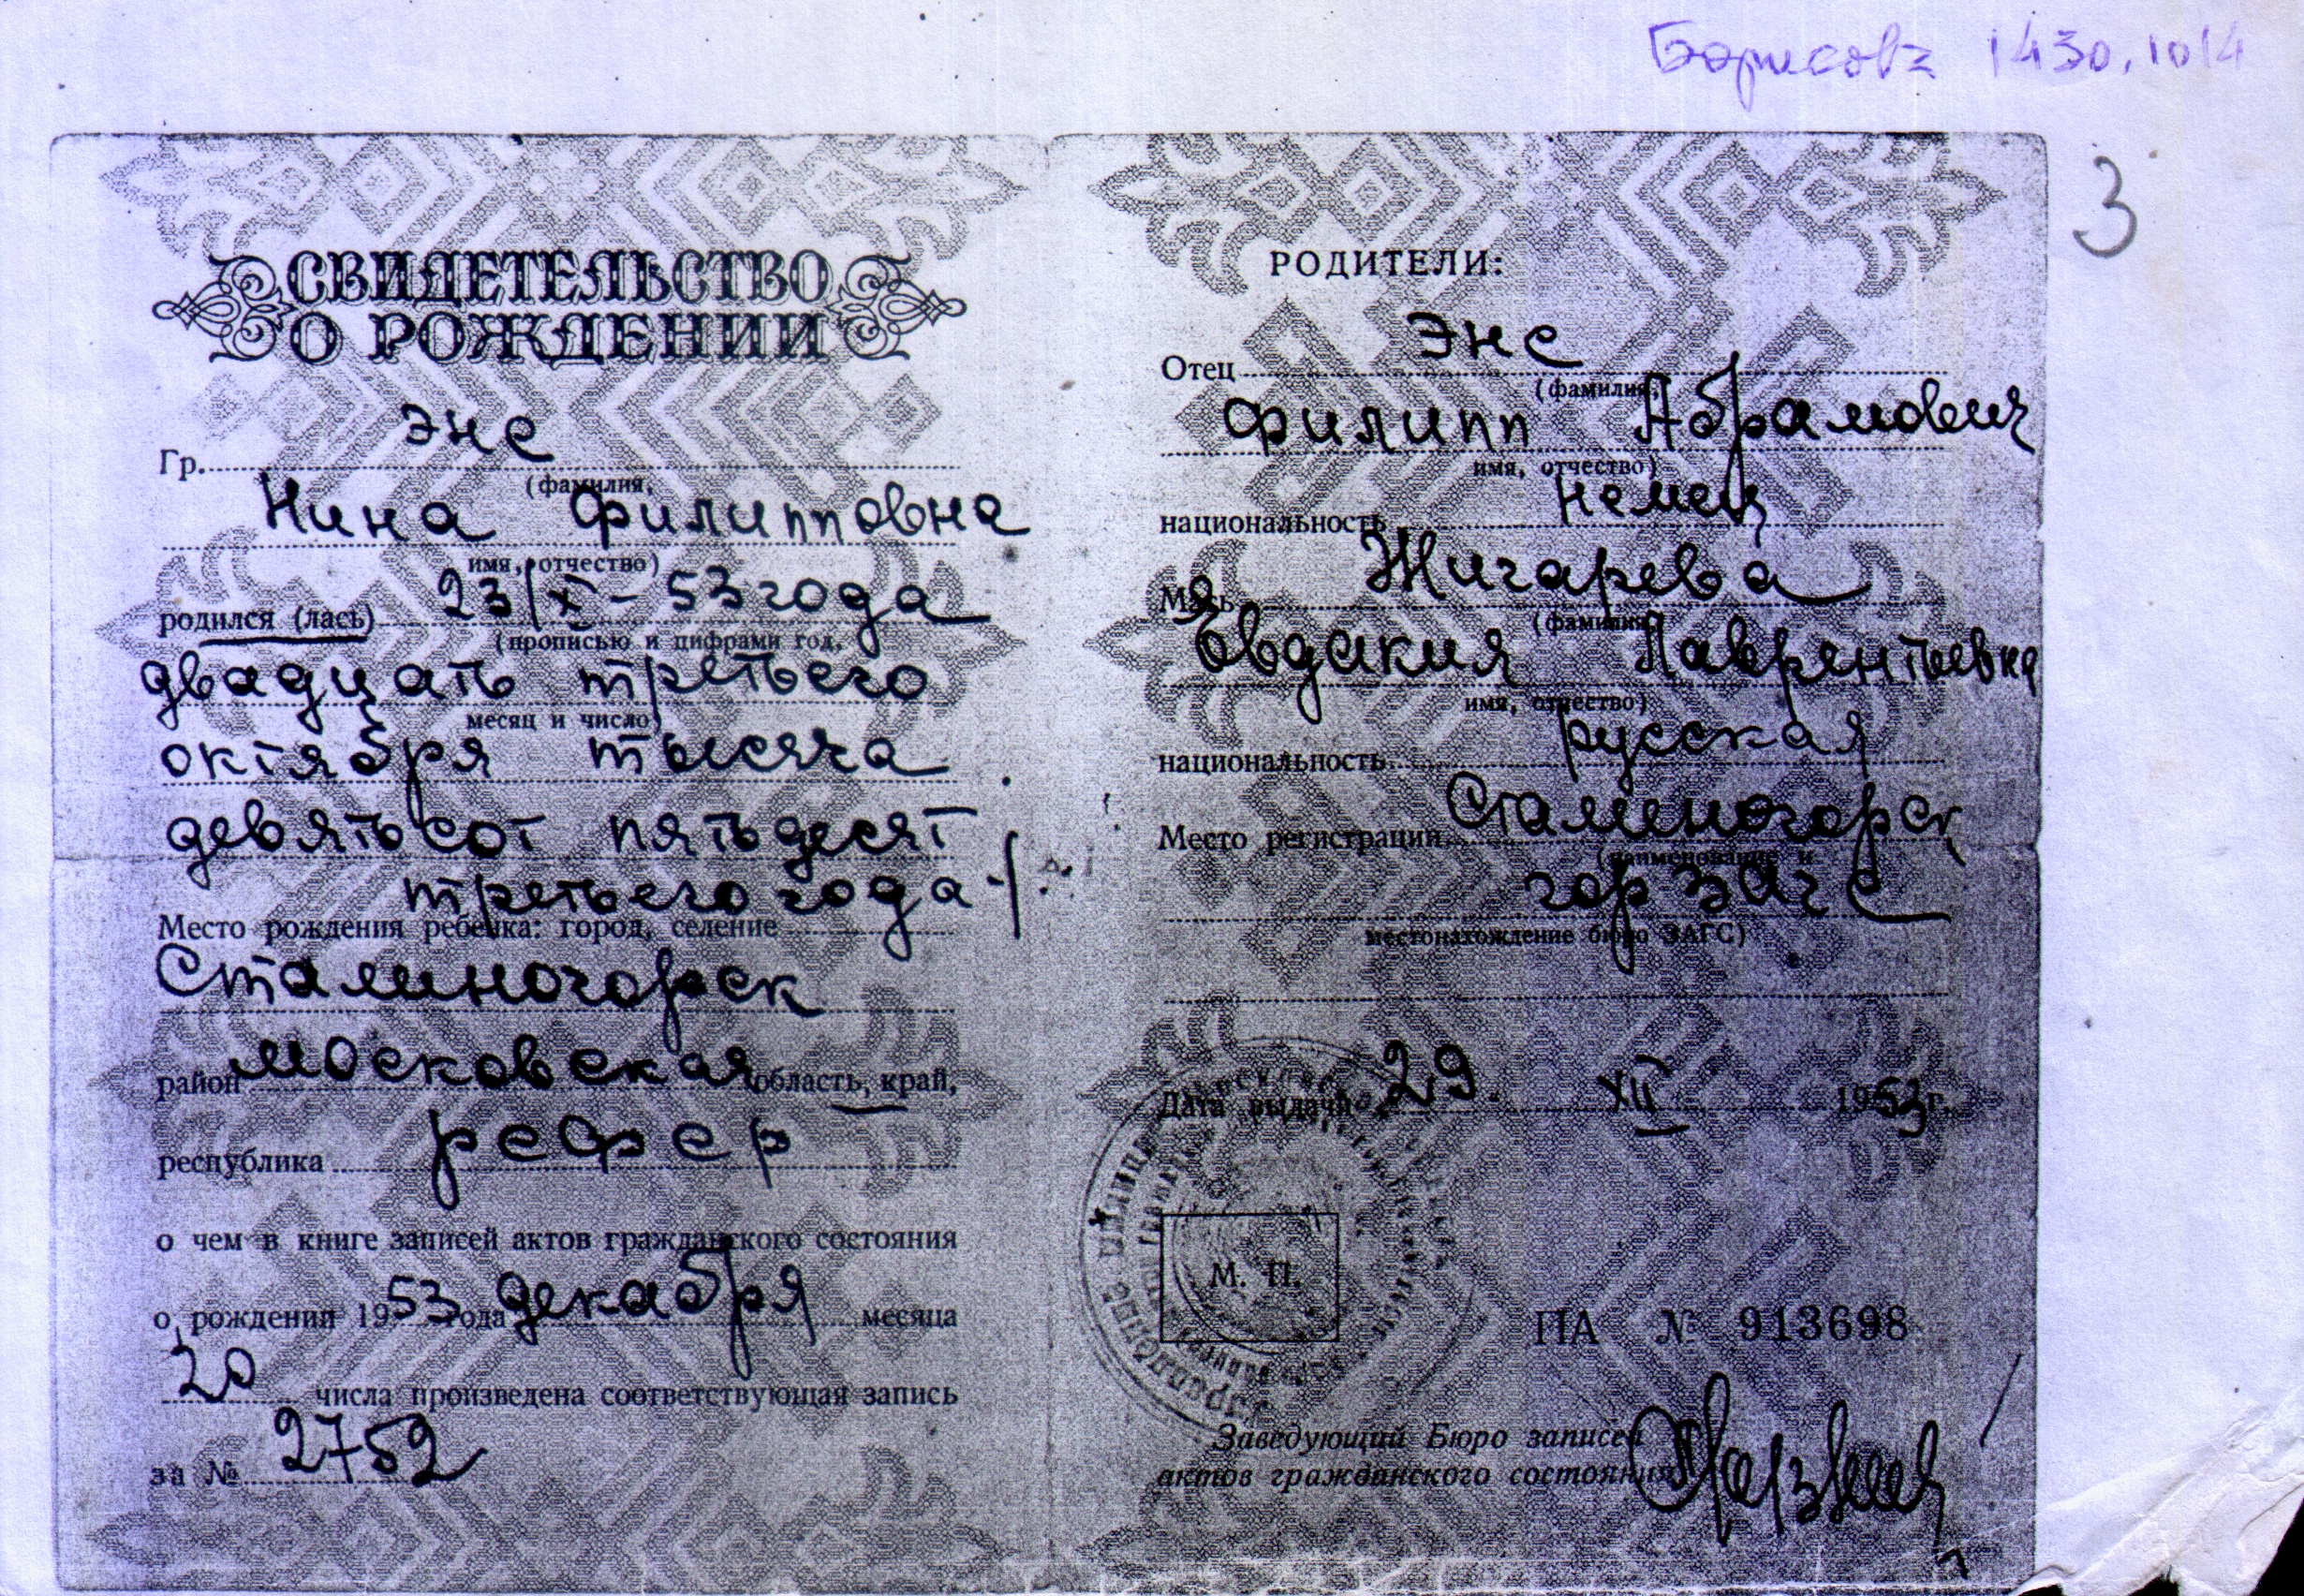 Борисова 1430.1014
3
СВИДЕТЕЛЬСТВО
О РОЖДЕНИИ
Гр. Энс
(фамилия,
Нина Филипповна
имя, отчество)
родился (лась) 23/X - 53 года
(прописью и цифрами год,
двадцать третьего
месяц и число)
октября тысяча
девятьсот пятьдесят
третьего года
Место рождения ребенка: город, селение
Сталиногорск
район Московская область, край,
республика рсфср
о чем в книге записей актов гражданского состояния
о рождении 1953 года декабря месяца
20 числа произведена соответствующая запись
за № 2752
РОДИТЕЛИ:
Отец Энс
(фамилия,
Филипп Абрамович
имя, отчество)
национальность немец
Мать Жигарева
(фамилия,
Евдакия Лаврентьевна
имя, отчество)
национальность русская
Место регистрации Сталиногорск
(наименование и
гор загс
местонахождение бюро ЗАГС)
Дата выдачи 29. XII 1953 г.
М. П.
ПА № 913698
Заведующий Бюро записей
актов гражданского состояния